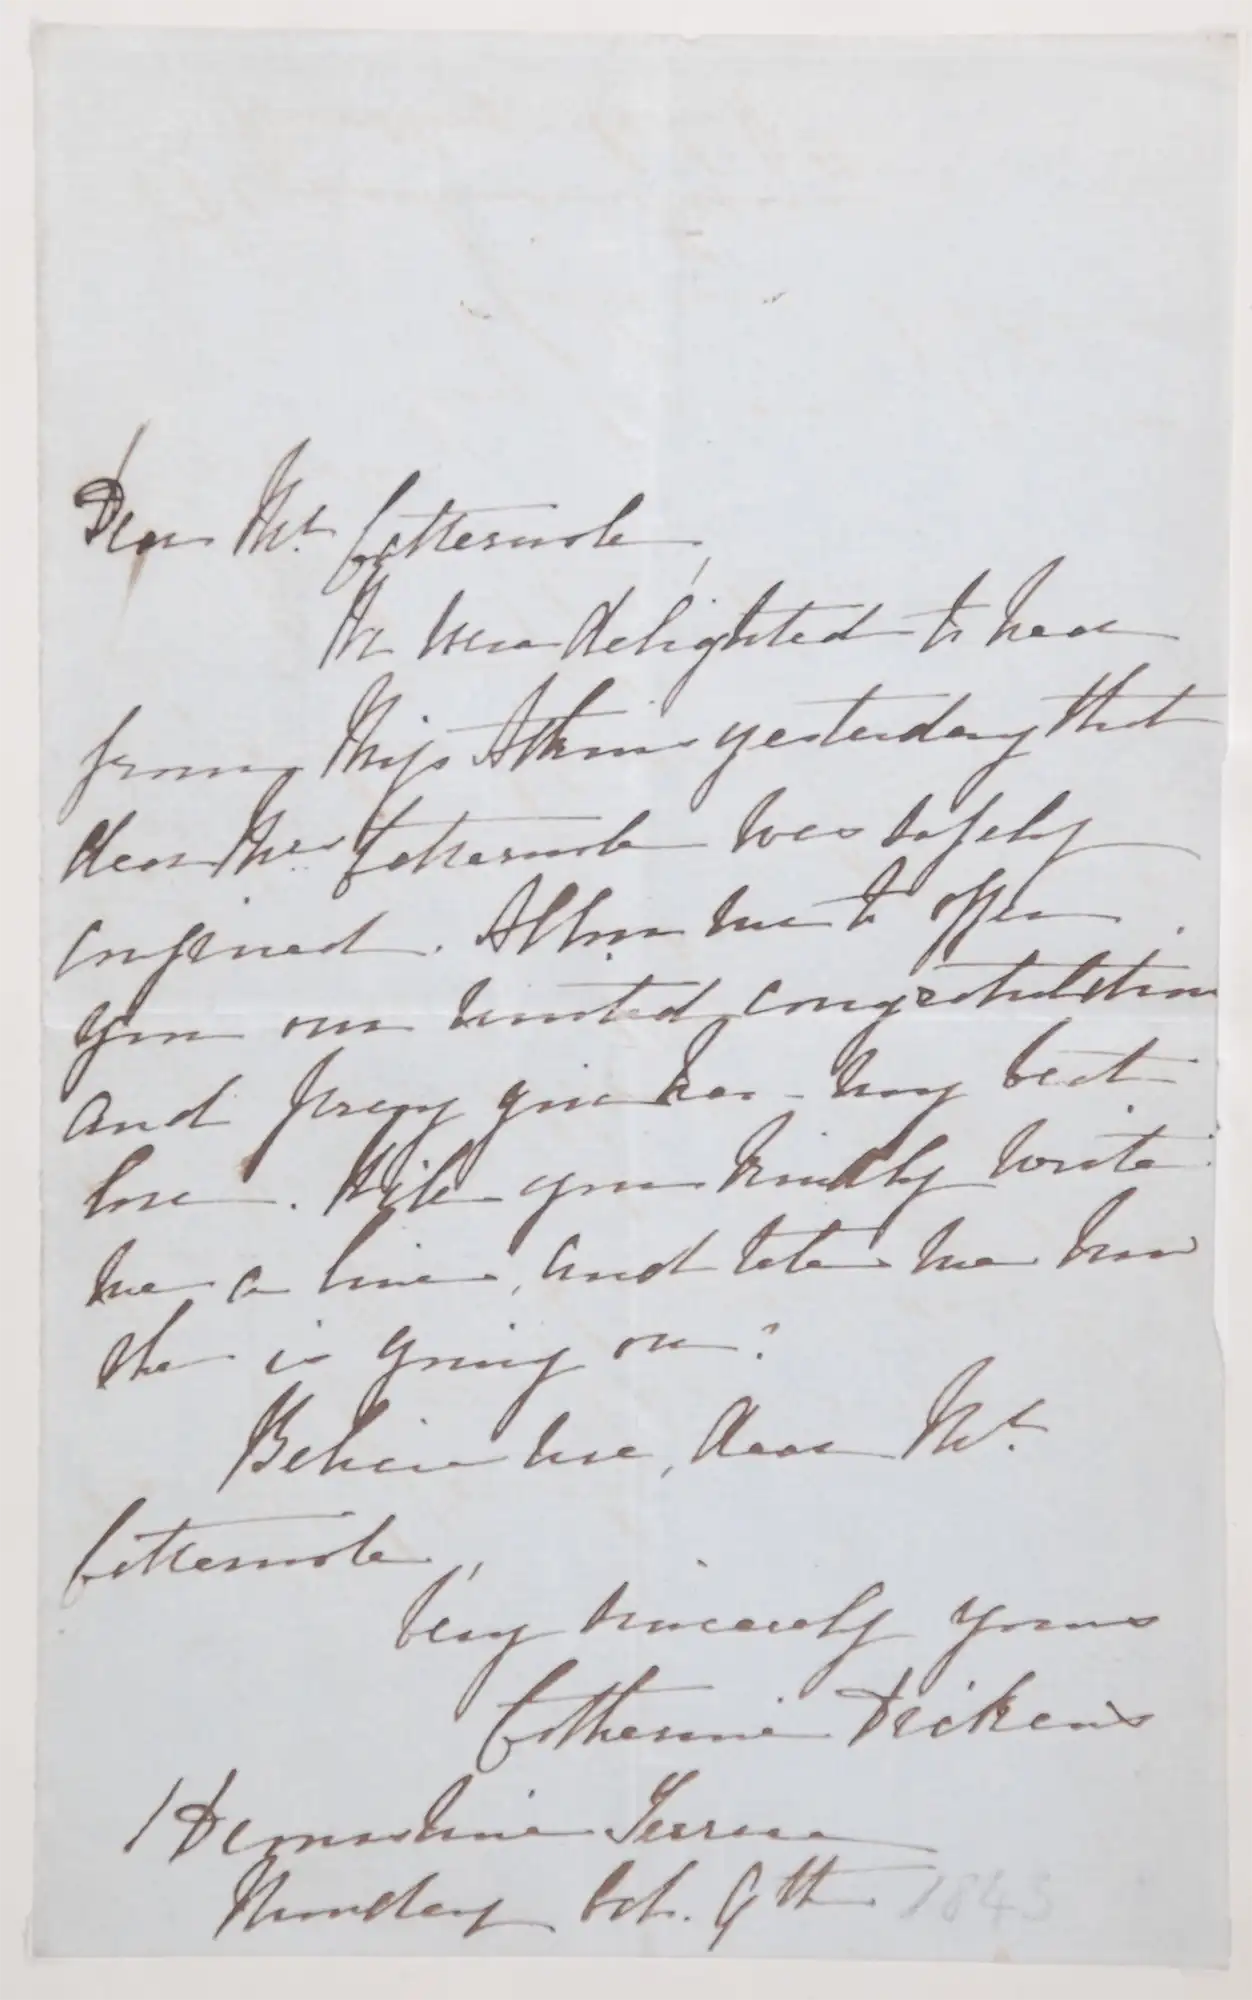 Dear Mr. Cattermole,
We were delighted to hear
from Miss Atkins yesterday that
dear Mrs. Cattermole was safely
confined. Allow me to offer
you our united congratulations
and pray give her my best
love. Will you kindly write
me a line, and tell me how
she is going on?
Believe me, dear Mr.
Cattermole,
Very sincerely yours
Catherine Dickens
1 Devonshire Terrace
Monday Oct. 9th 1843